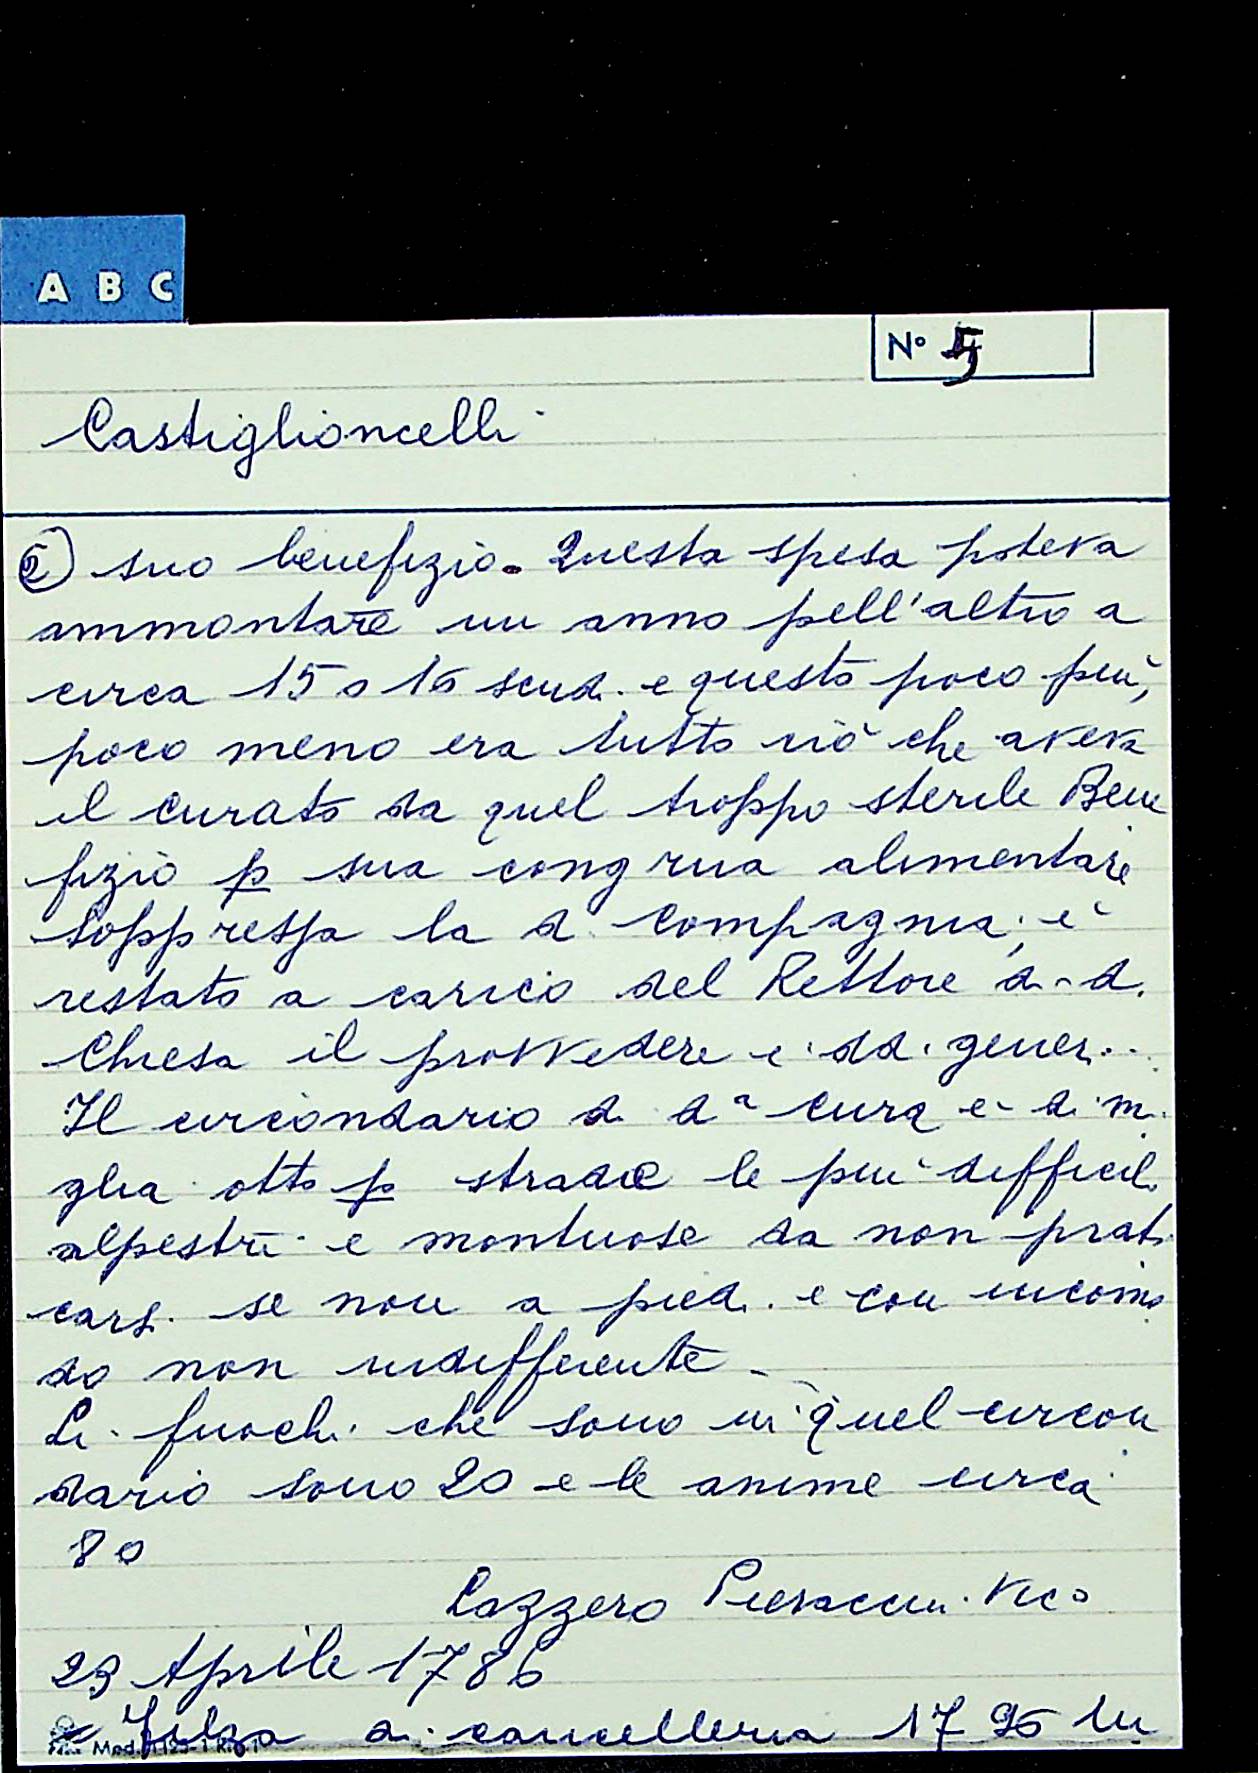 A B C
N° 5
Castiglioncelli
2) suo benefizio. Questa spesa poteva
ammontare un anno pell'altro a
circa 15 o 16 scud. e questo poco più,
poco meno era tutto ciò che aveva
il curato da quel troppo sterile Bene
fizio p sua congrua alimentare
Soppressa la d. Compagnia; è
restato a carico del Rettore d. d.
Chiesa il provvedere e dd. gener..
Il circondario di dª cura è di mi
glia otto p strade le più difficili
alpestri e montuose da non prati
carsi se non a piedi e con incomo
do non indifferente
Li fuochi che sono in quel circon
dario sono 20 e le anime circa
80
Lazzero Pieraccini Vic°
23 Aprile 1786
Filza di cancelleria 1795 lu
Mod. 125-1 Rig 1